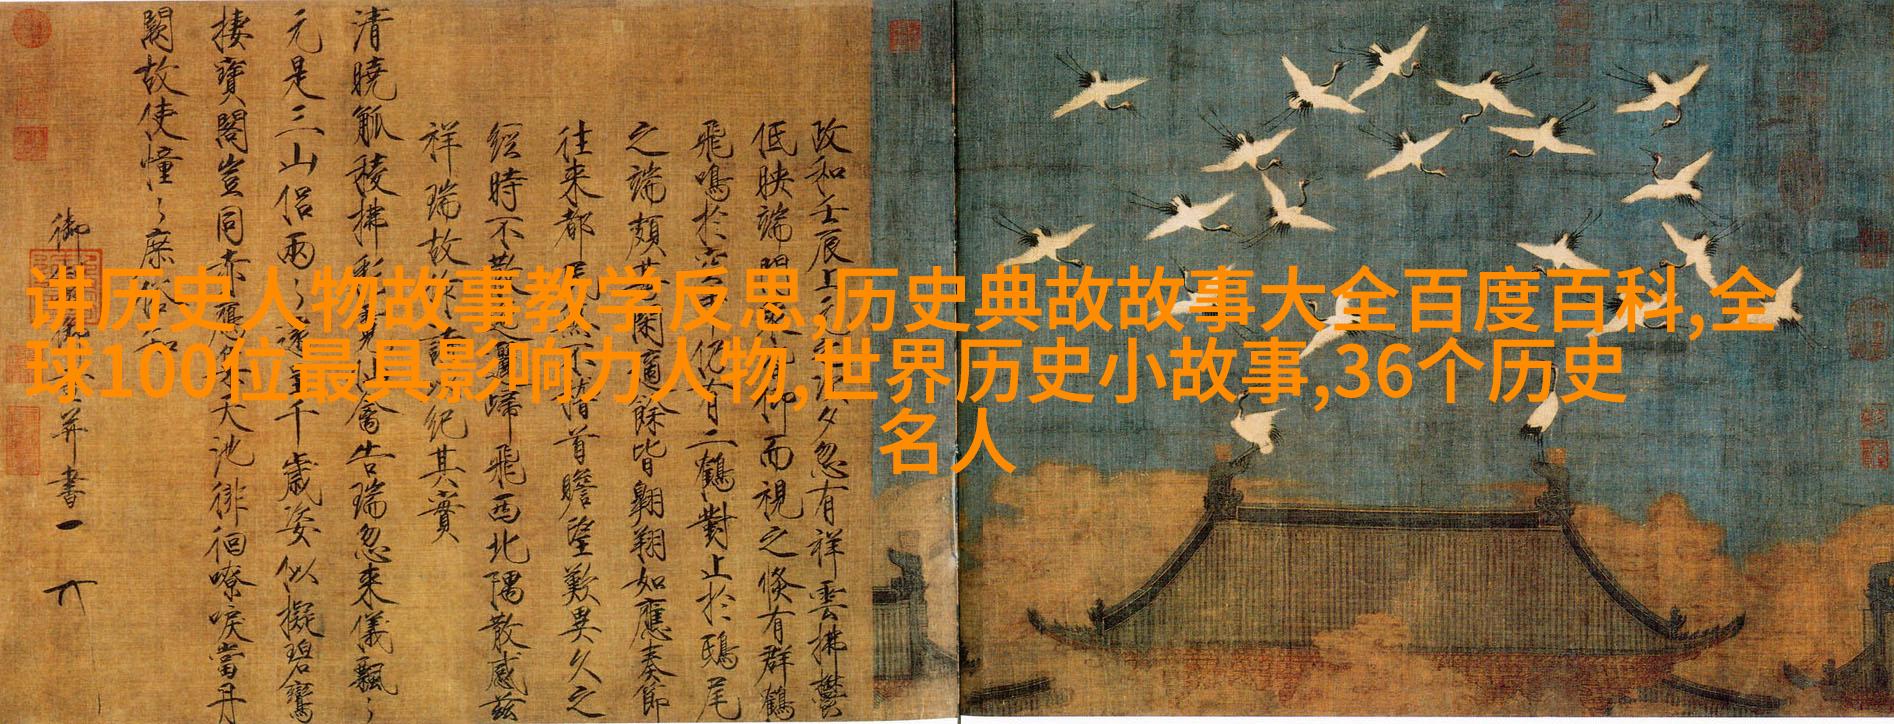 讲历史人物故事教学反思,历史典故故事大全百度百科,全
球100位最具影响力人物,世界历史小故事,36个历史
名人
政和壬辰上元之次夕忽有祥雲拂鬱
低映端門衆皆仰而視之倏有群鶴
飛鳴於空中仍有二鶴對止於鴟尾
之端頗甚閑適餘皆翱翔如應奏節
往來都民無不稽首瞻望歎異久之
經時不散迤邐歸飛西北隅散感茲
祥瑞故作詩以紀其實
清曉觚稜拂彩霓仙禽告瑞忽來儀飄〻
元是三山侶兩〻還呈千歲姿似擬碧鸞
棲寶閣豈同赤鴈集天池徘徊嘹唳當丹
闕故使憧〻庶俗知
御製御畫并書